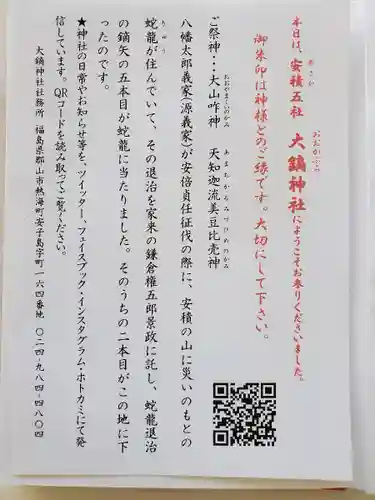 本日は、安積五社 大鏑神社にようこそお参りくださいました。
御朱印は神様とのご縁です。大切にして下さい。
ご祭神・・・大山咋神 天知迦流美豆比売神
八幡太郎義家(源義家)が安倍貞任征伐の際に、安積の山に災いのもとの
蛇龍が住んでいて、その退治を家来の鎌倉権五郎景政に託し、蛇龍退治
の鏑矢の五本目が蛇龍に当たりました。そのうちの二本目がこの地に下
ったのです。
★神社の日常やお知らせ等を、ツイッター、フェイスブック・インスタグラム・ホトカミにて発
信しています。QRコードを読み取ってご覧ください。
大鏑神社社務所 福島県郡山市熱海町安子島字町一六四番地 〇二四-九八四-四八〇四